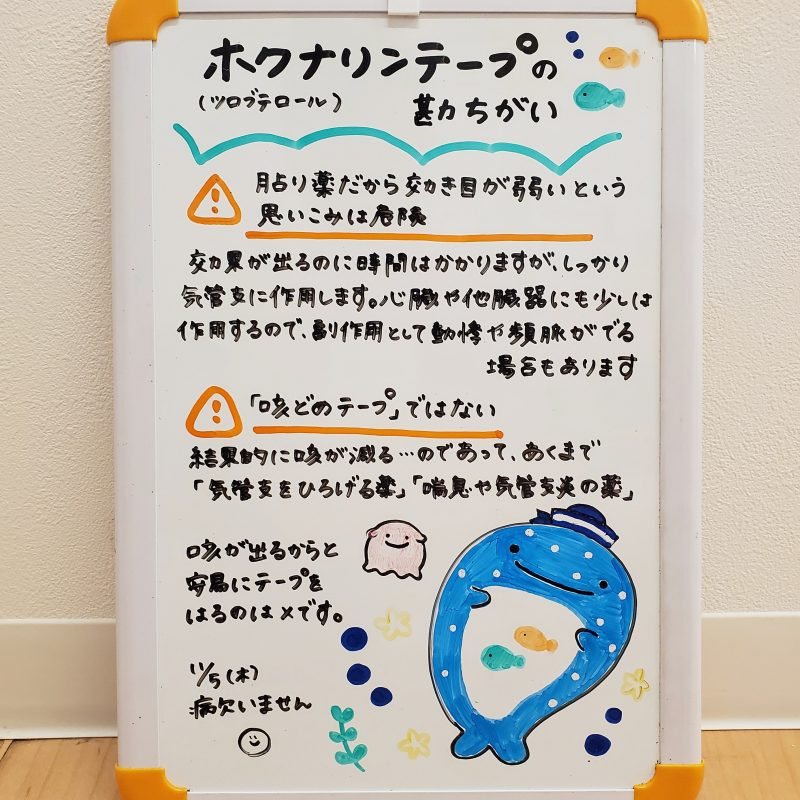 ホクナリンテープの
(ツロブテロール) 勘ちがい
貼り薬だから効き目が弱いという
思いこみは危険
効果が出るのに時間はかかりますが、しっかり
気管支に作用します。心臓や他臓器にも少しは
作用するので、副作用として動悸や頻脈がでる
場合もあります
「咳どめテープ」ではない
結果的に咳が減る…のであって、あくまで
「気管支をひろげる薬」「喘息や気管支炎の薬」
咳が出るからと
安易にテープを
はるのは×です。
11/5(木)
病欠いません